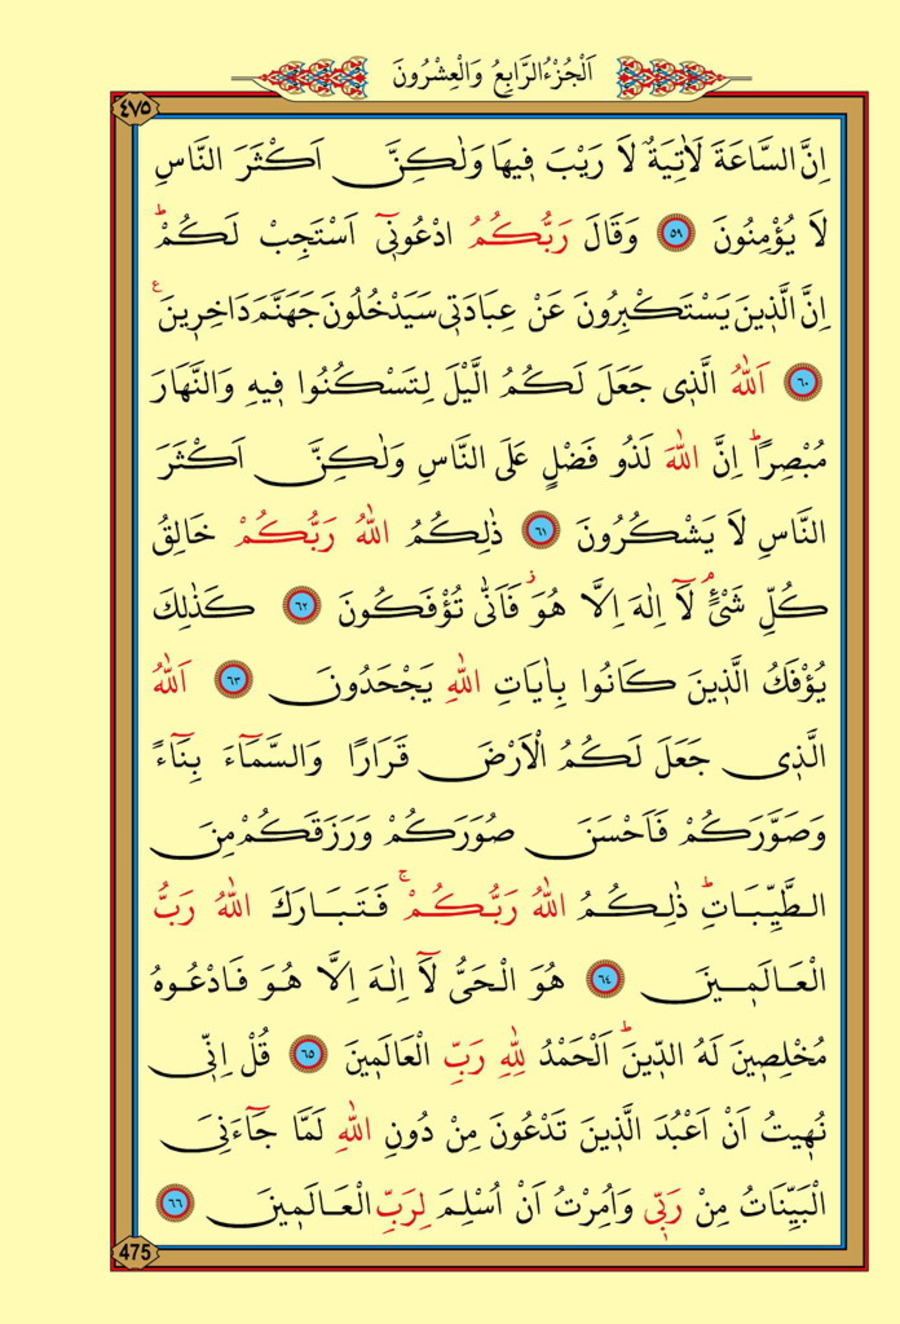 اَلْجُزْءُ الرَّابِعُ وَالْعِشْرُونَ
٤٧٥
اِنَّ السَّاعَةَ لَاٰتِيَةٌ لَا رَيْبَ فٖيهَا وَلٰكِنَّ اَكْثَرَ النَّاسِ
لَا يُؤْمِنُونَ ٥٩ وَقَالَ رَبُّكُمُ ادْعُونٖٓي اَسْتَجِبْ لَكُمْؕ
اِنَّ الَّذٖينَ يَسْتَكْبِرُونَ عَنْ عِبَادَتٖي سَيَدْخُلُونَ جَهَنَّمَ دَاخِرٖينَ ع
٦٠ اَللّٰهُ الَّذٖي جَعَلَ لَكُمُ الَّيْلَ لِتَسْكُنُوا فٖيهِ وَالنَّهَارَ
مُبْصِرًاؕ اِنَّ اللّٰهَ لَذُو فَضْلٍ عَلَى النَّاسِ وَلٰكِنَّ اَكْثَرَ
النَّاسِ لَا يَشْكُرُونَ ٦١ ذٰلِكُمُ اللّٰهُ رَبُّكُمْ خَالِقُ
كُلِّ شَيْءٍۢ لَٓا اِلٰهَ اِلَّا هُوَؗ فَاَنّٰى تُؤْفَكُونَ ٦٢ كَذٰلِكَ
يُؤْفَكُ الَّذٖينَ كَانُوا بِاٰيَاتِ اللّٰهِ يَجْحَدُونَ ٦٣ اَللّٰهُ
الَّذٖي جَعَلَ لَكُمُ الْاَرْضَ قَرَارًا وَالسَّمَٓاءَ بِنَٓاءً
وَصَوَّرَكُمْ فَاَحْسَنَ صُوَرَكُمْ وَرَزَقَكُمْ مِنَ
الطَّيِّبَاتِؕ ذٰلِكُمُ اللّٰهُ رَبُّكُمْۚ فَتَبَارَكَ اللّٰهُ رَبُّ
الْعَالَمٖينَ ٦٤ هُوَ الْحَيُّ لَٓا اِلٰهَ اِلَّا هُوَ فَادْعُوهُ
مُخْلِصٖينَ لَهُ الدّٖينَؕ اَلْحَمْدُ لِلّٰهِ رَبِّ الْعَالَمٖينَ ٦٥ قُلْ اِنّٖي
نُهٖيتُ اَنْ اَعْبُدَ الَّذٖينَ تَدْعُونَ مِنْ دُونِ اللّٰهِ لَمَّا جَٓاءَنِيَ
الْبَيِّنَاتُ مِنْ رَبّٖي وَاُمِرْتُ اَنْ اُسْلِمَ لِرَبِّ الْعَالَمٖينَ ٦٦
475